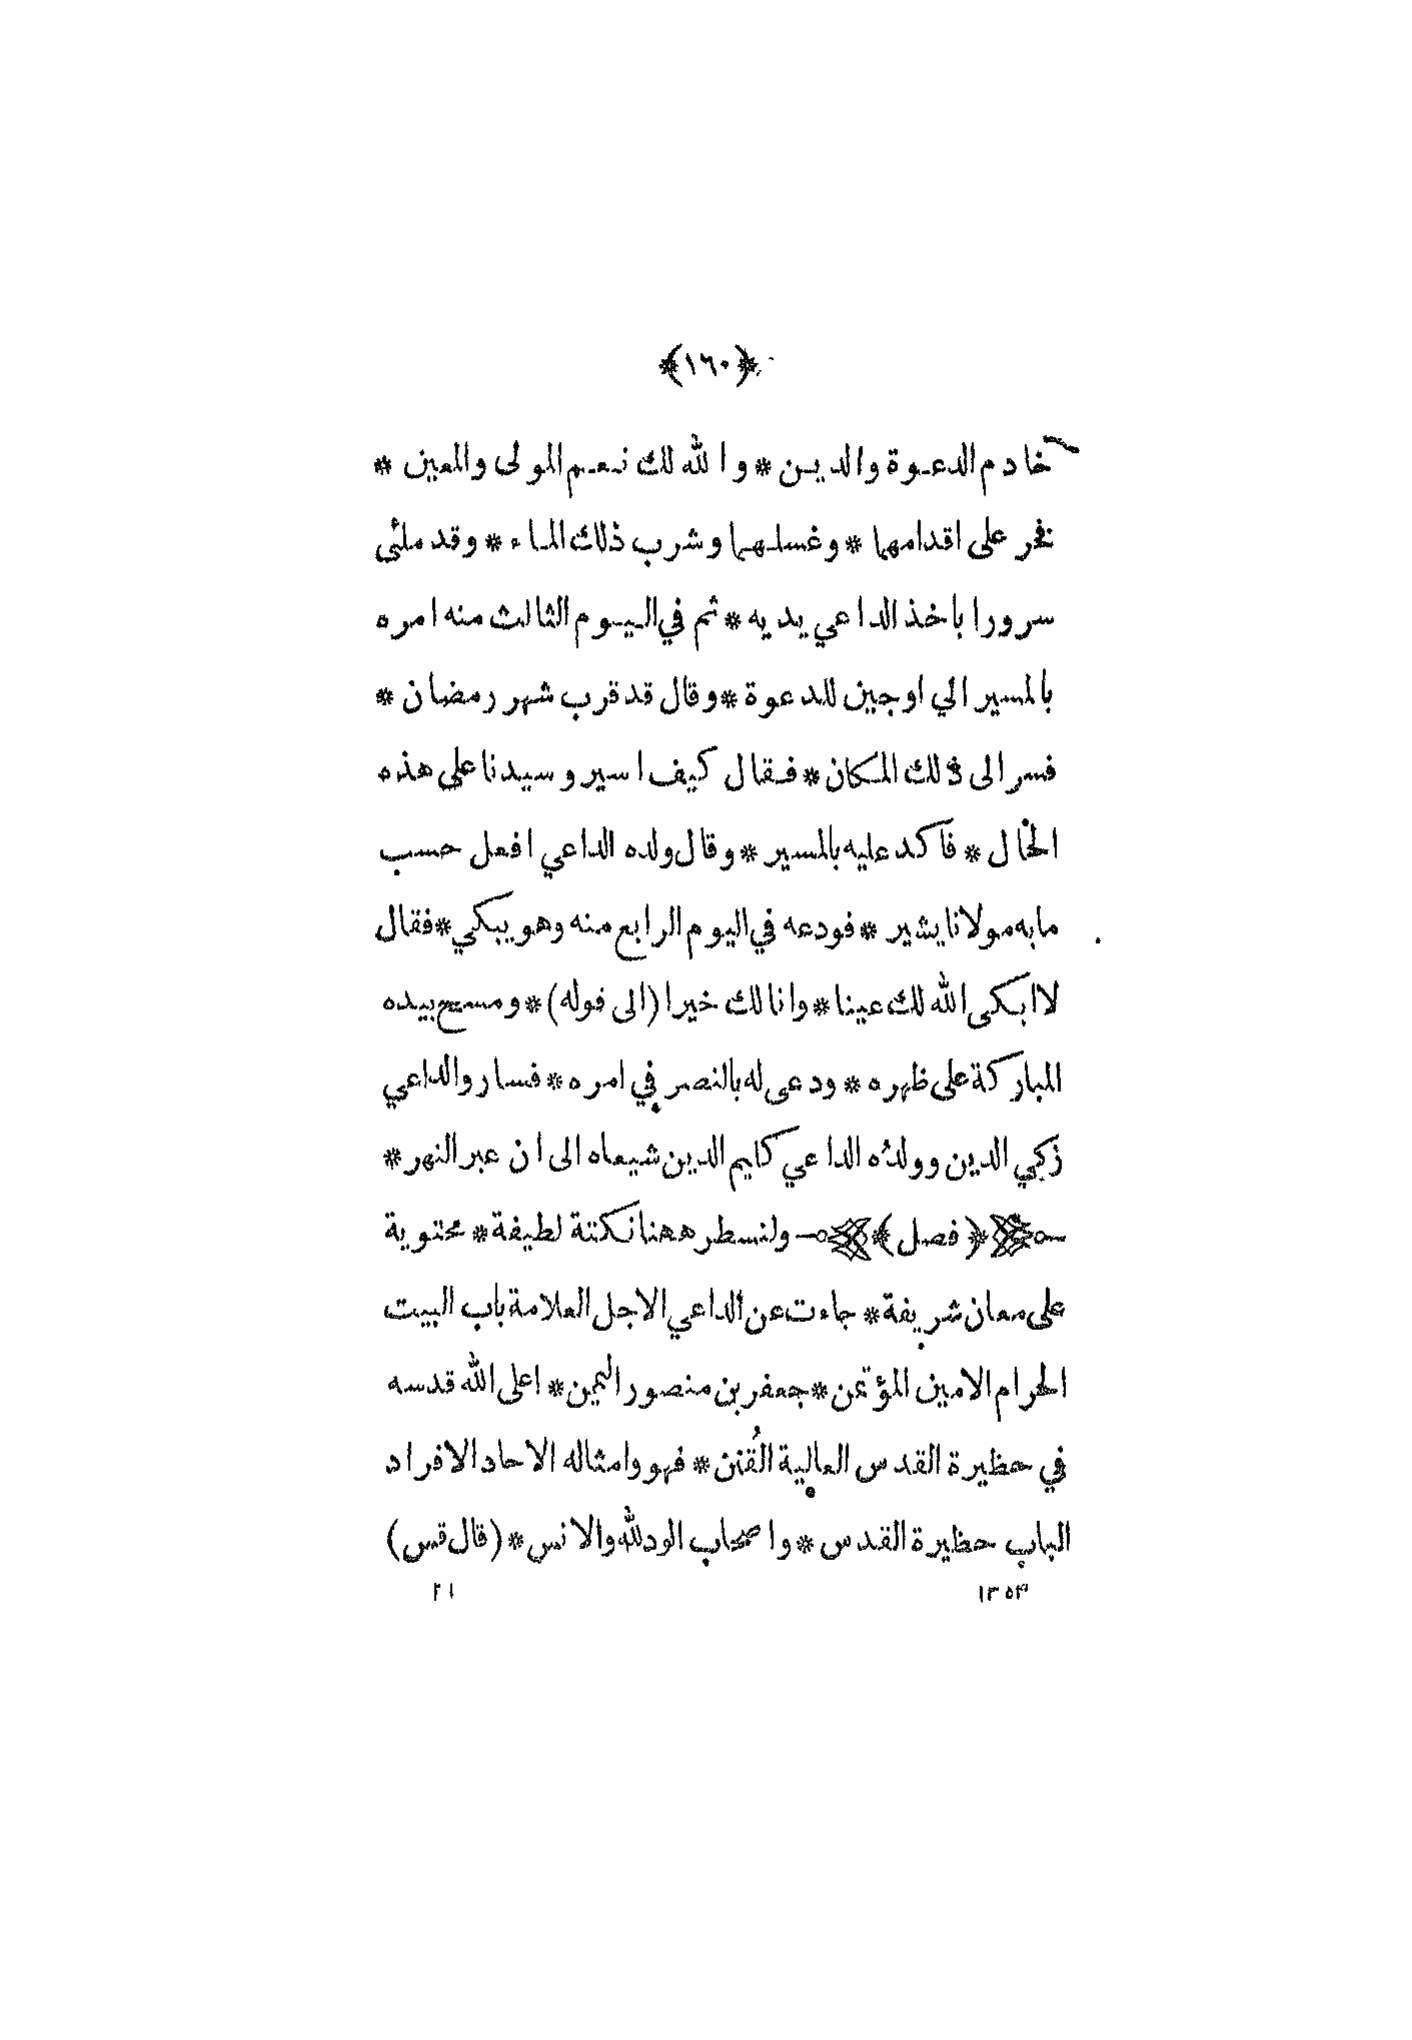 ﴿١٦٠﴾
خادم الدعوة والدين * والله لك نعم المولى والمعين *
فخر على اقدامهما * وغسلهما وشرب ذلك الماء * وقد ملئى
سرورا باخذ الداعي يديه * ثم في اليوم الثالث منه امره
بالمسير الي اوجين للدعوة * وقال قد قرب شهر رمضان *
فسر الى ذلك المكان * فقال كيف اسير وسيدنا على هذه
الحال * فاكد عليه بالمسير * وقال ولده الداعي افعل حسب
ما به مولانا يشير * فودعه في اليوم الرابع منه وهو يبكي * فقال
لا ابكى الله لك عينا * وانا لك خيرا (الى قوله) * ومسح بيده
المباركة على ظهره * ودعى له بالنصر في امره * فسار والداعي
زكي الدين وولده الداعي كليم الدين شيعاه الى ان عبر النهر *
﴿فصل﴾ ولنسطر ههنا نكتة لطيفة * محتوية
على معان شريفة * جاءت عن الداعي الاجل العلامة باب البيت
الحرام الامين المؤتمن * جعفر بن منصور اليمن * اعلى الله قدسه
في حظيرة القدس العالية القُنن * فهو وامثاله الاحاد الافراد
الباب حظيرة القدس * واصحاب الود لله والانس * (قال قس)
١٣٥٤ ٢١